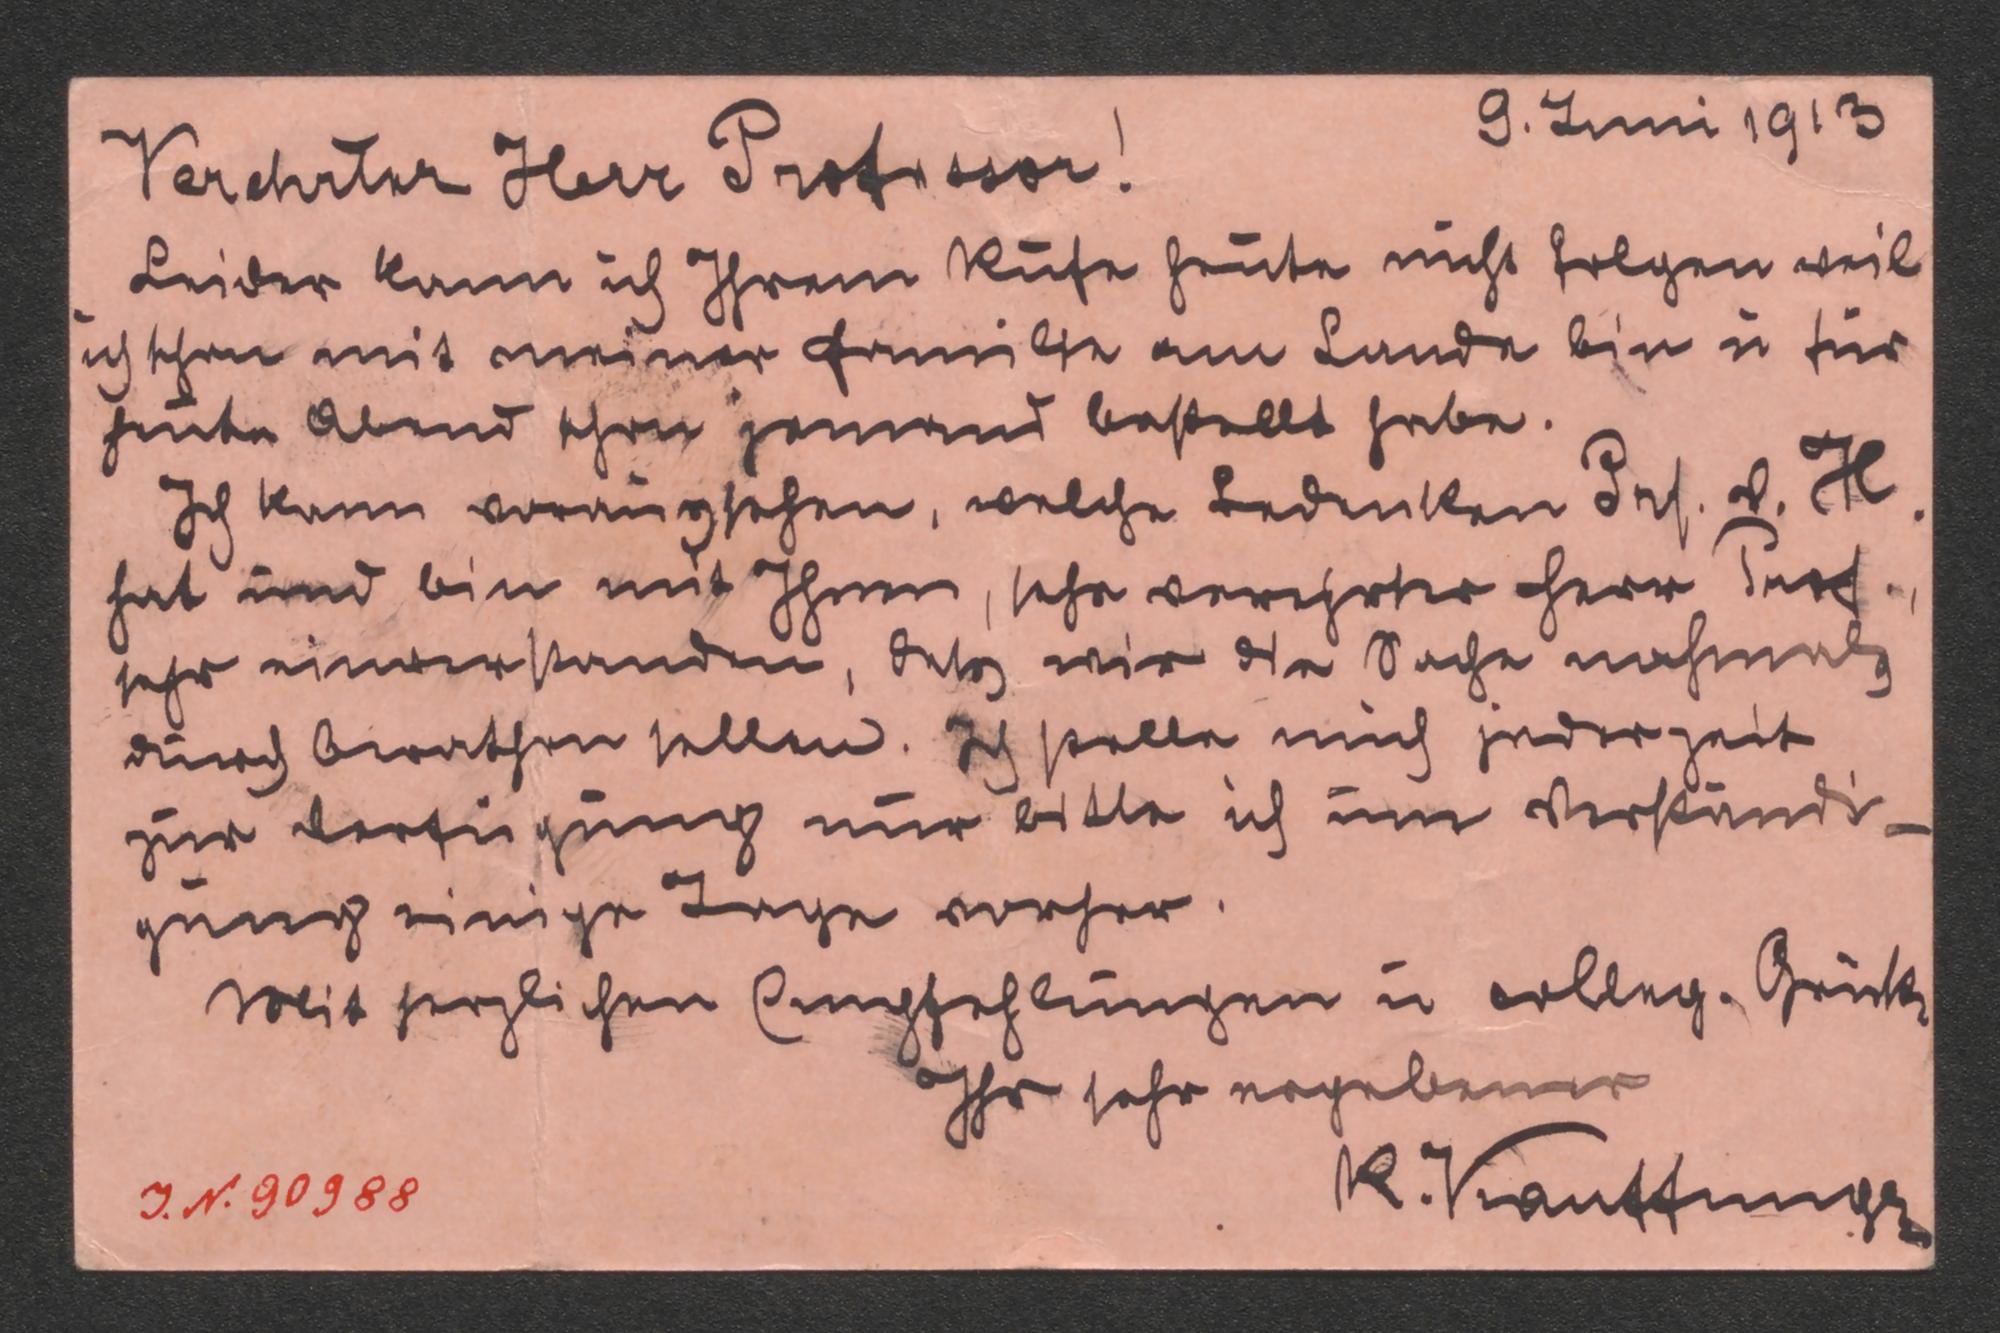 9. Juni 1913
Verehrter Herr Professor!
Leider kann ich Ihrem Rufe heute nicht folgen weil
ich schon mit meiner Familie am Lande bin u für
heute Abend schon jemand bestellt habe.
Ich kann voraussehen, welche Bedenken Prof. v. H.
hat und bin mit Ihnen, sehr verehrter Herr Prof.,
sehr einverstanden, dass wir die Sache nochmals
durch berathen sollen. Ich stelle mich jederzeit
zur Verfügung nur bitte ich um Verständi-
gung einige Tage vorher.
Mit herzlichen Empfehlungen u colleg. Grüßen
Ihr sehr ergebener
K.
J. N. 90988